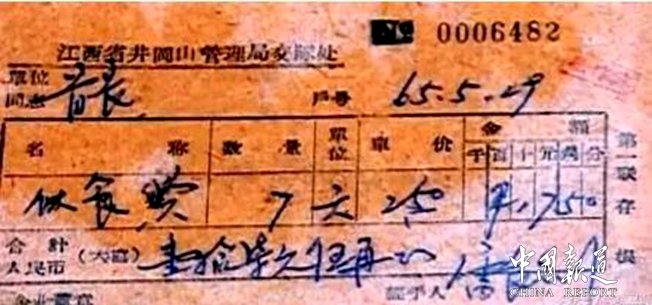 № 0006482
江西省井冈山管理局交际处
單位
同志 首長 戶号 65.5.29
名称 数量 單位 單价 金額
千百十元角分
伙食費 7 天 250 ¥1750
第一联存根
合計
人民币 (大寫) 壹拾柒元伍角
經手人
中國報道
CHINA REPORT